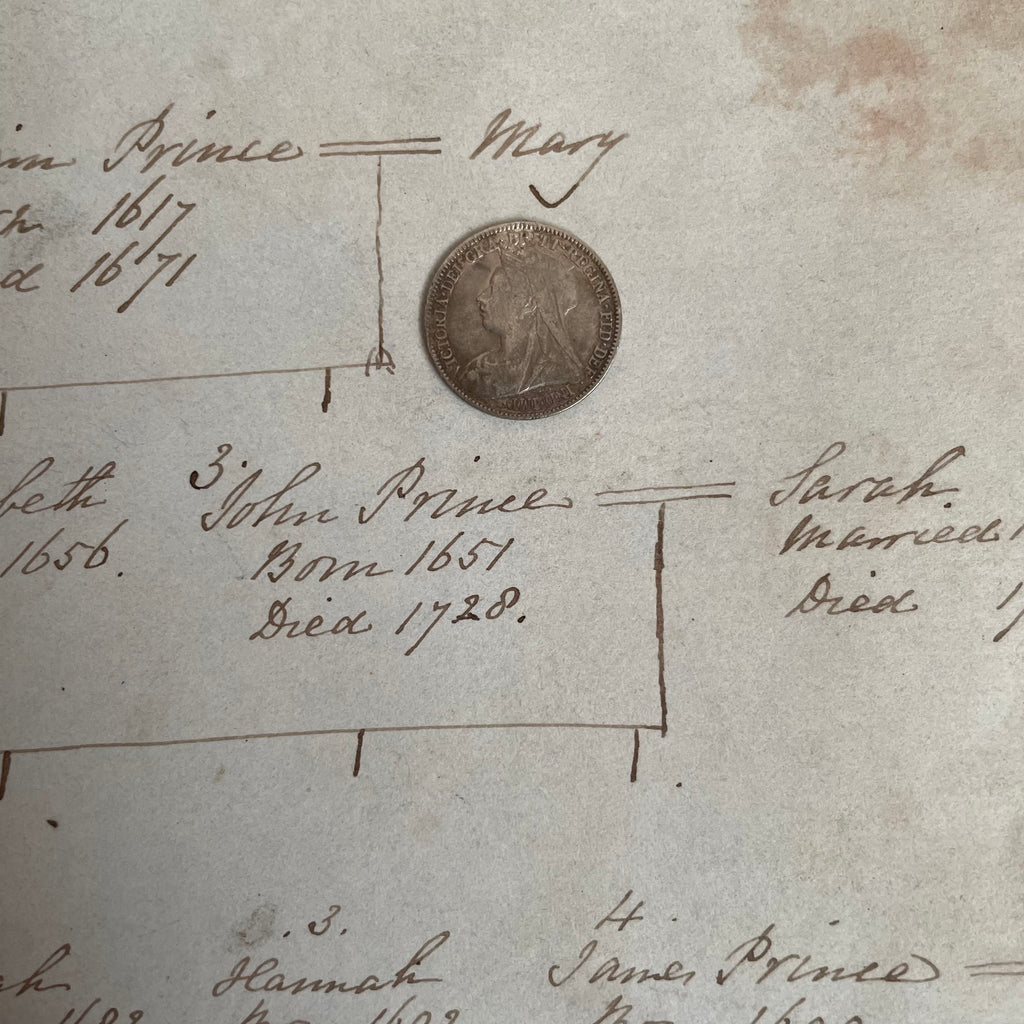 Prince = Mary
1617
1671
VICTORIA·DEI·GRA·BRITT·REGINA·FID·DEF·
beth
1656.
3. John Prince = Sarah
Born 1651
Married
Died 1728.
Died
3.
4.
Hannah
James Prince =